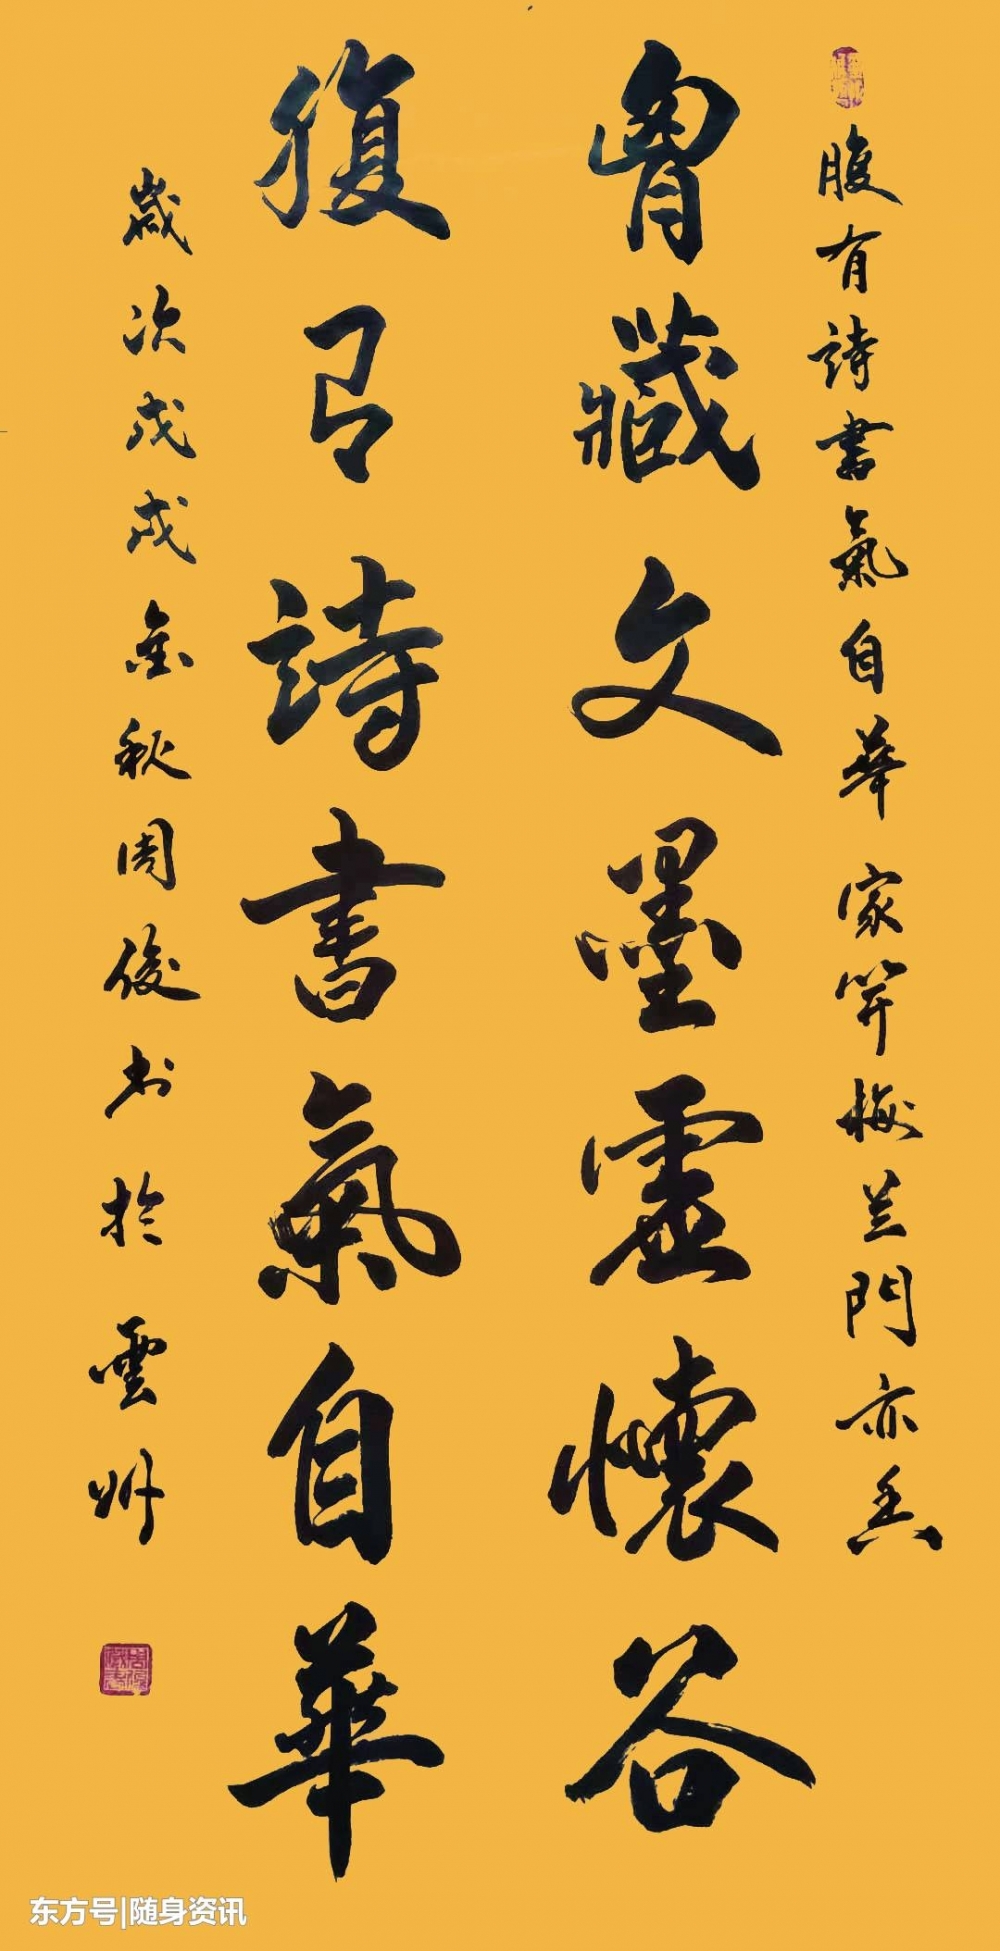 腹有詩書氣自華 家梅兰門亦香
胷藏文墨虛懷谷
腹有詩書氣自華
歲次戊戌金秋周俊书於雲州
东方号|随身资讯